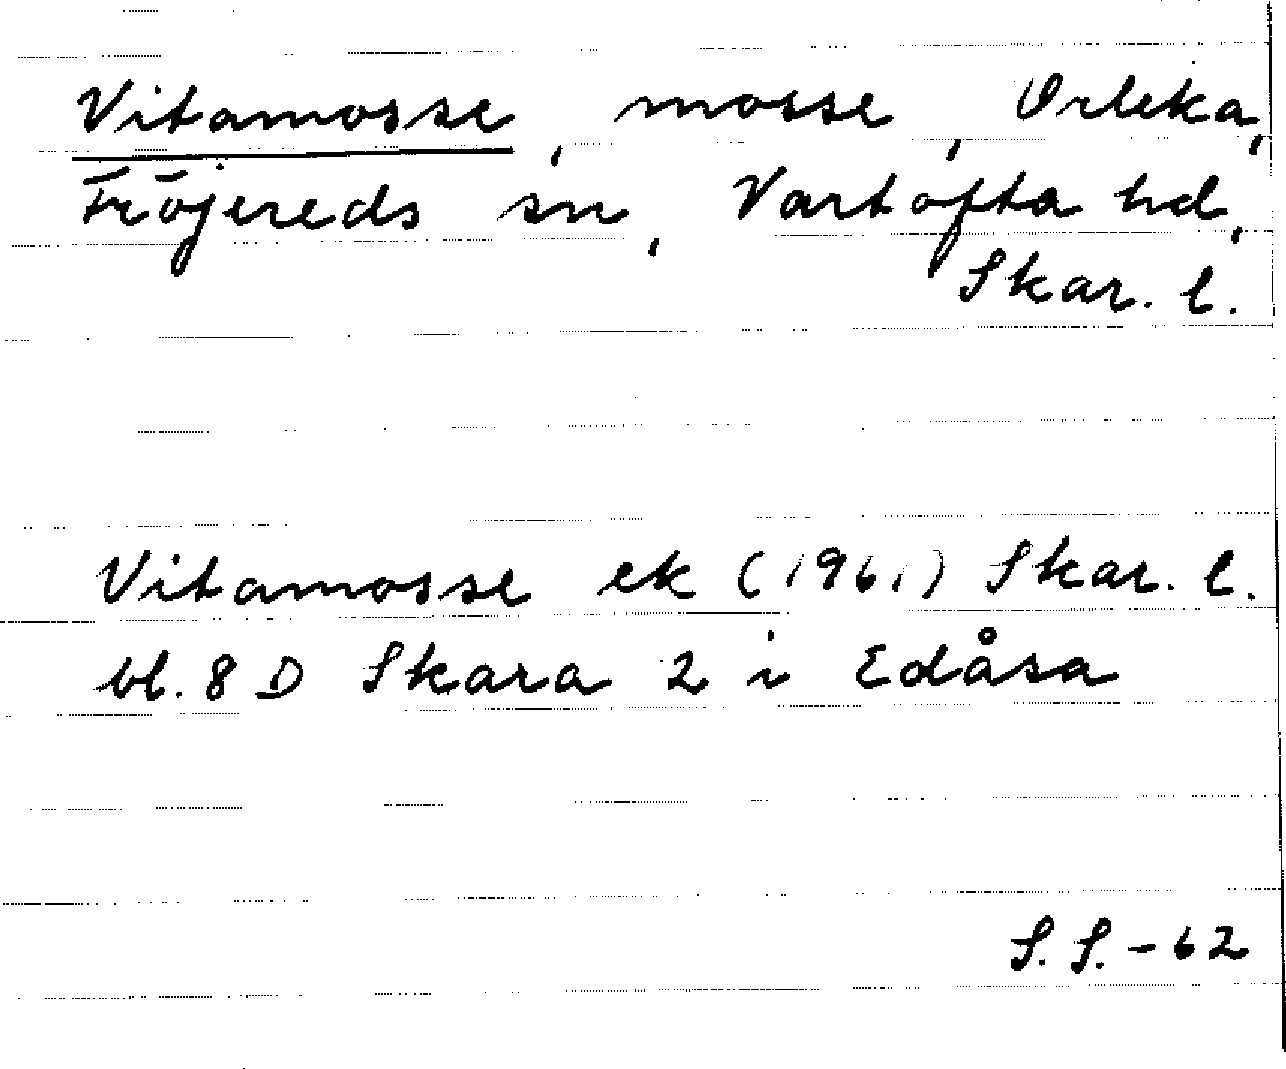 Vitamosse, mosse, Orleka,
Fröjereds sn, Vartofta hd,
Skar. l.
Vitamosse ek (1961) Skar. l.
bl. 8 D Skara 2 i Edåsa
S. S. - 62